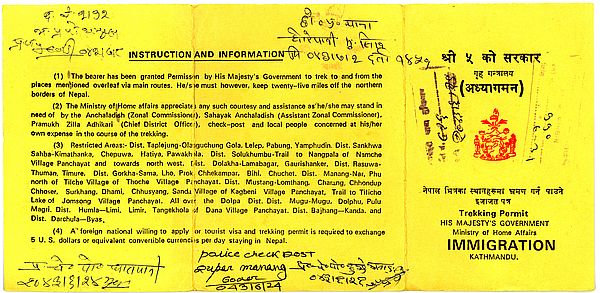 INSTRUCTION AND INFORMATION
(1) The bearer has been granted Permisson by His Majesty's Government to trek to and from the
places mentioned overleaf via main routes. He/she must however, keep twenty-five miles off the northern
borders of Nepal.
(2) The Ministry of Home affairs appreciates any such courtesy and assistance as he/she may stand in
need of by the Anchaladish (Zonal Commissioner), Sahayak Anchaladish (Assistant Zonal Commissioner),
Pramukh Zilla Adhikari (Chief District Officer), check-post and local people concerned at his/her
own expense in the course of the trekking.
(3) Restricted Areas:- Dist. Taplejung-Olangguchung Gola, Lelep, Pabung, Yamphudin. Dist. Sankhwa
Sabha-Kimathanka, Chepuwa, Hatiya, Pawakhola, Dist. Solukhumbu-Trail to Nangpala of Namche
Village Panchayat and towards north west. Dist. Dolakha-Lamabagar, Gaurishanker, Dist. Rasuwa-
Thuman, Timure, Dist. Gorkha-Sama, Lho, Prok, Chhekampar, Bihi, Chuchet. Dist. Manang-Nar, Phu
north of Tilche Village of Thoche Village Panchayat. Dist. Mustang-Lomthang, Charang, Chhondup
Chhoser, Surkhang, Dhami, Chhusyang, Sanda Village of Kagbeni Village Panchayat, Trail to Tilicho
Lake of Jomsong Village Panchayat. All over the Dolpa Dist. Dist. Mugu-Mugu, Dolphu, Pulu
Magri. Dist. Humla—Limi, Limir, Tangekhola of Dana Village Panchayat. Dist. Bajhang—Kanda. and
Dist. Darchula—Byas.
(4) A foreign national willing to apply for tourist visa and trekking permit is required to exchange
5 U. S. dollars or equivalent convertible currencies per day staying in Nepal.
police check post
uper manang
श्री ५ को सरकार
गृह मन्त्रालय
(अध्यागमन)
नेपाल भित्रका स्थानहरूमा भ्रमण गर्न पाउने
इजाजत पत्र
Trekking Permit
HIS MAJESTY'S GOVERNMENT
Ministry of Home Affairs
IMMIGRATION
KATHMANDU.